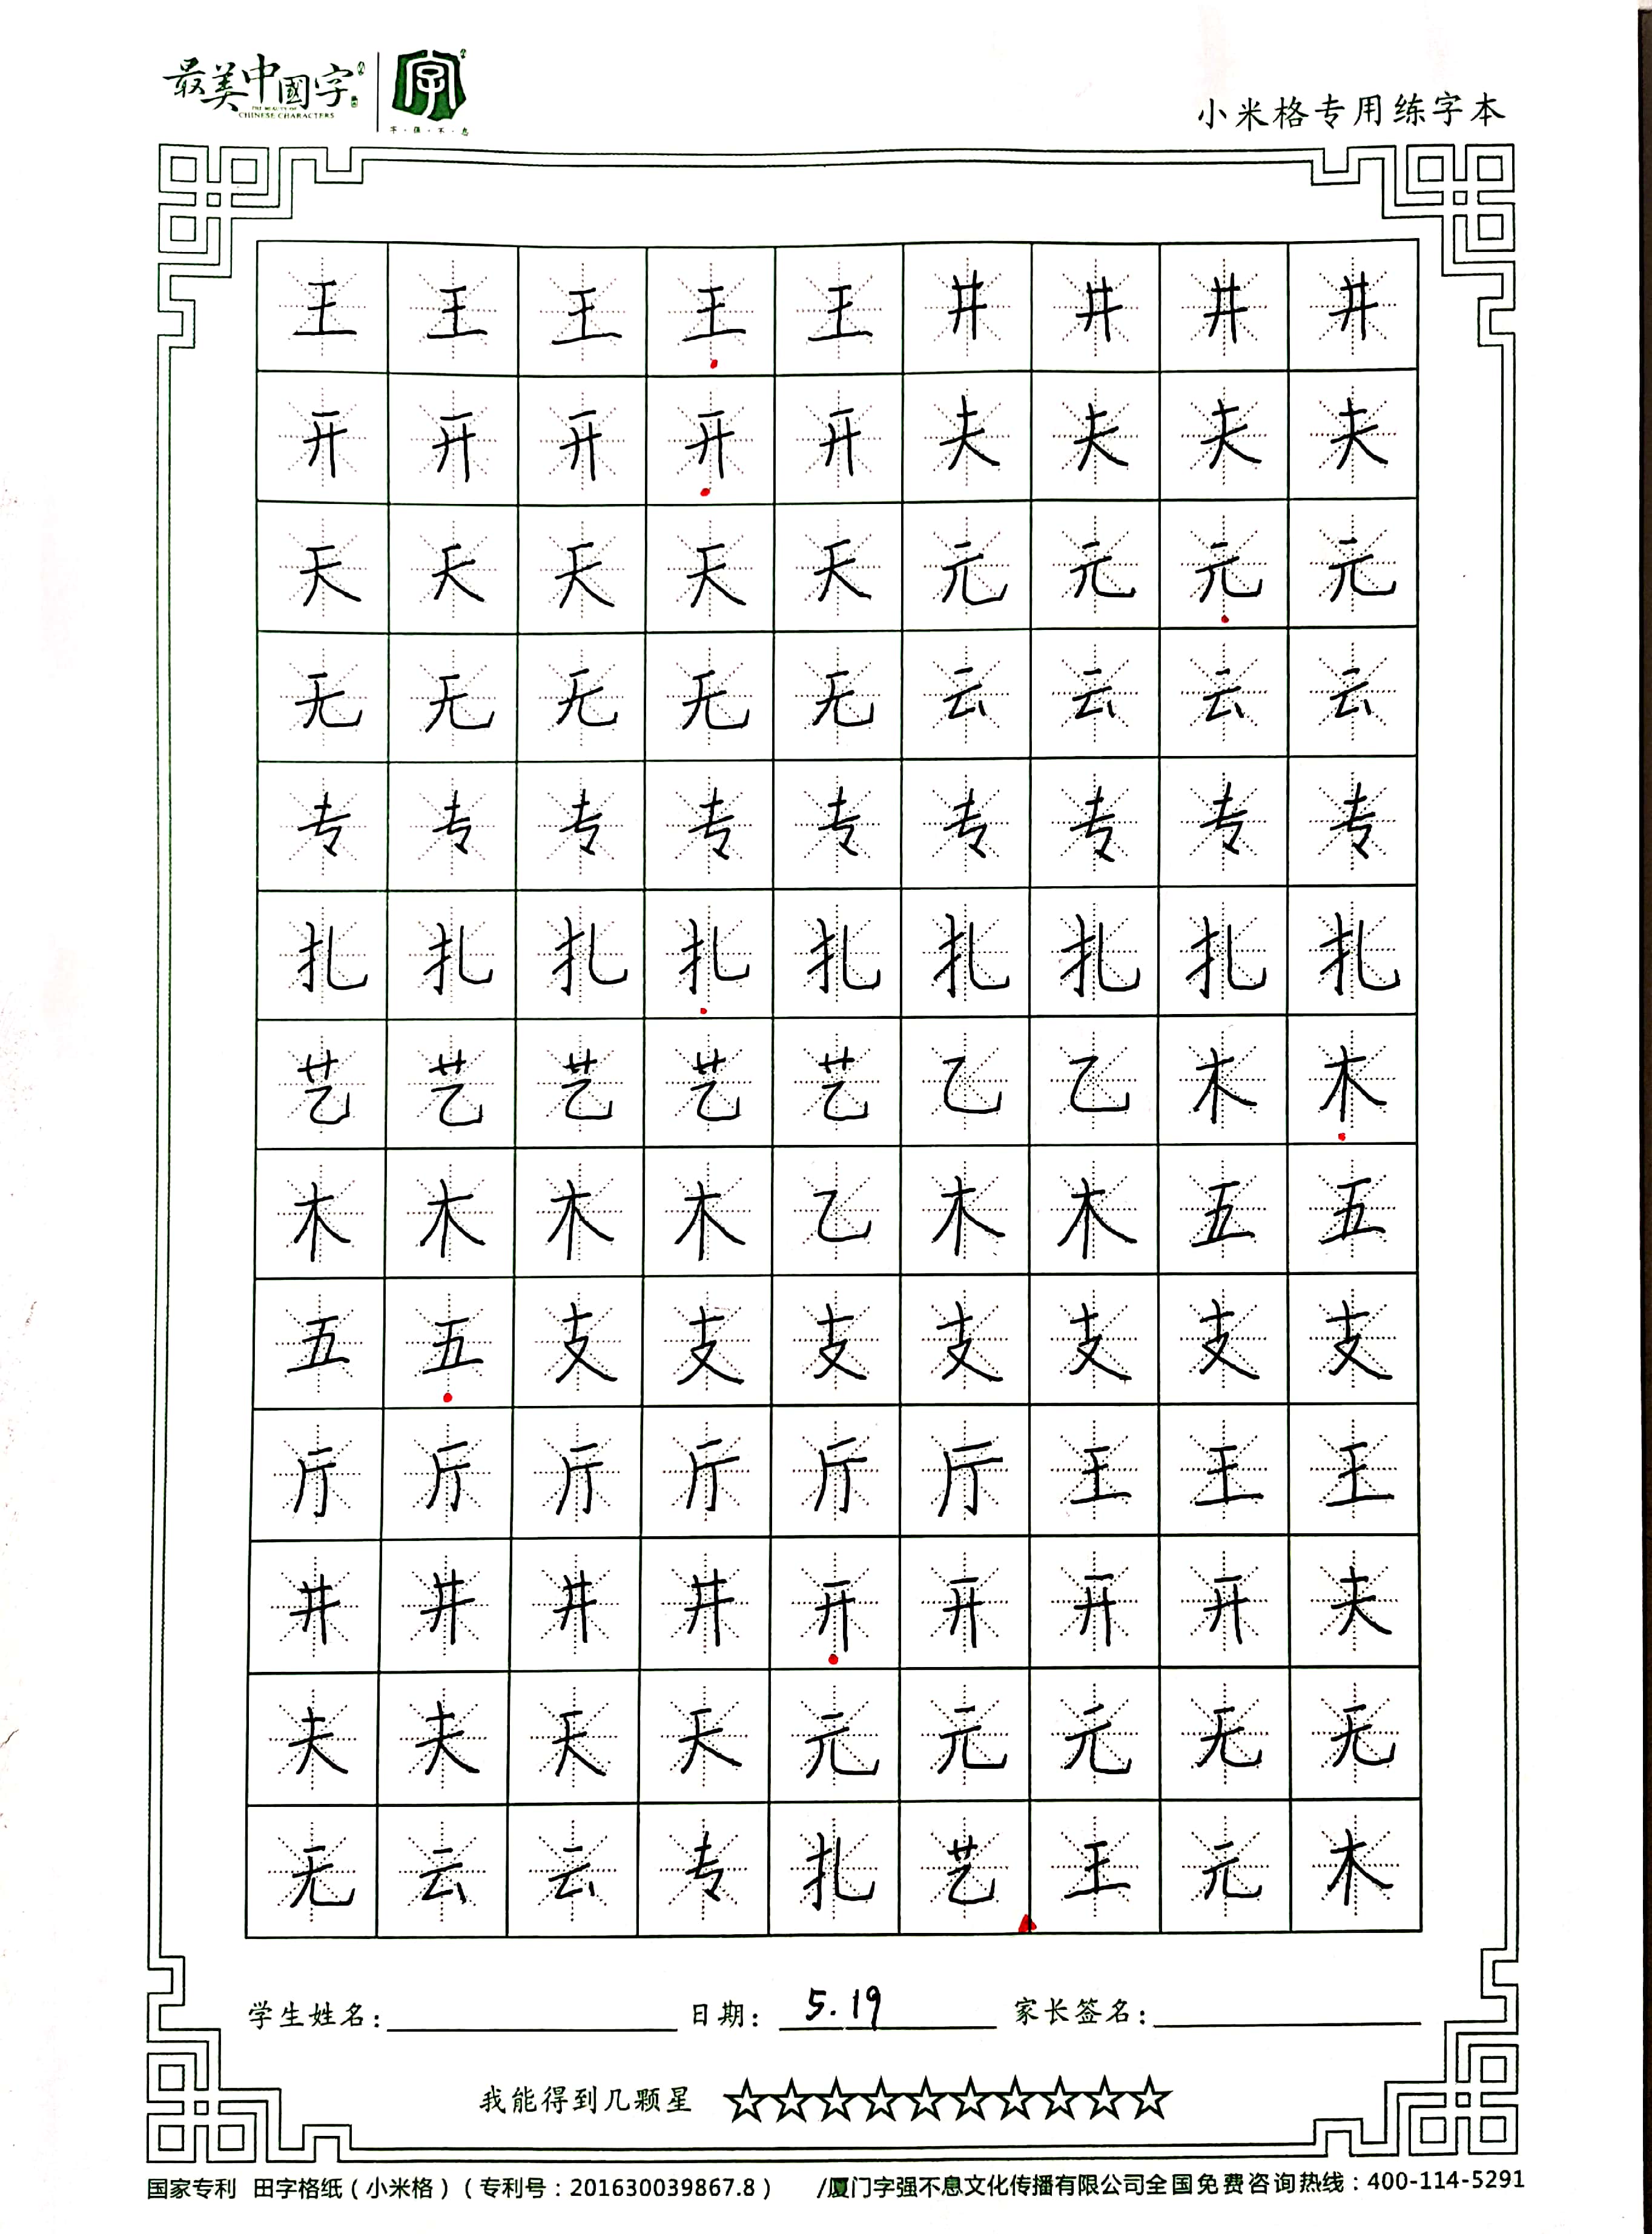 最美中國字
THE BEAUTY OF
CHINESE CHARACTERS
字
字·强·不·息
小米格专用练字本
王王王王王井井井井
开开开开开夫夫夫夫
天天天天天元元元元
无无无无无云云云云
专专专专专专专专专
扎扎扎扎扎扎扎扎扎
艺艺艺艺艺乙乙木木
木木木木乙木木五五
五五支支支支支支支
厅厅厅厅厅厅王王王
井井井井开开开开夫
夫夫天天元元元无无
无云云专扎艺王元木
学生姓名: 日期: 5.19 家长签名:
我能得到几颗星 ☆☆☆☆☆☆☆☆☆☆
国家专利 田字格纸(小米格)(专利号:201630039867.8) /厦门字强不息文化传播有限公司全国免费咨询热线:400-114-5291